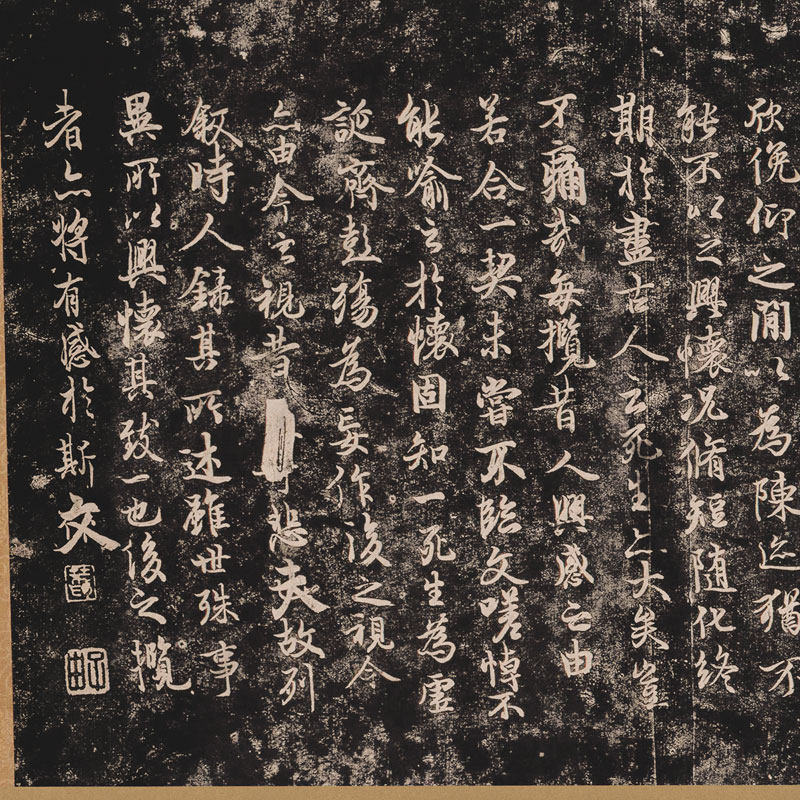 欣俛仰之閒以為陳迹猶不
能不以之興懷況脩短隨化終
期於盡古人云死生亦大矣豈
不痛哉每攬昔人興感之由
若合一契未嘗不臨文嗟悼不
能喻之於懷固知一死生為虛
誕齊彭殤為妄作後之視今
亦由今之視昔悲夫故列
敘時人錄其所述雖世殊事
異所以興懷其致一也後之攬
者亦將有感於斯文